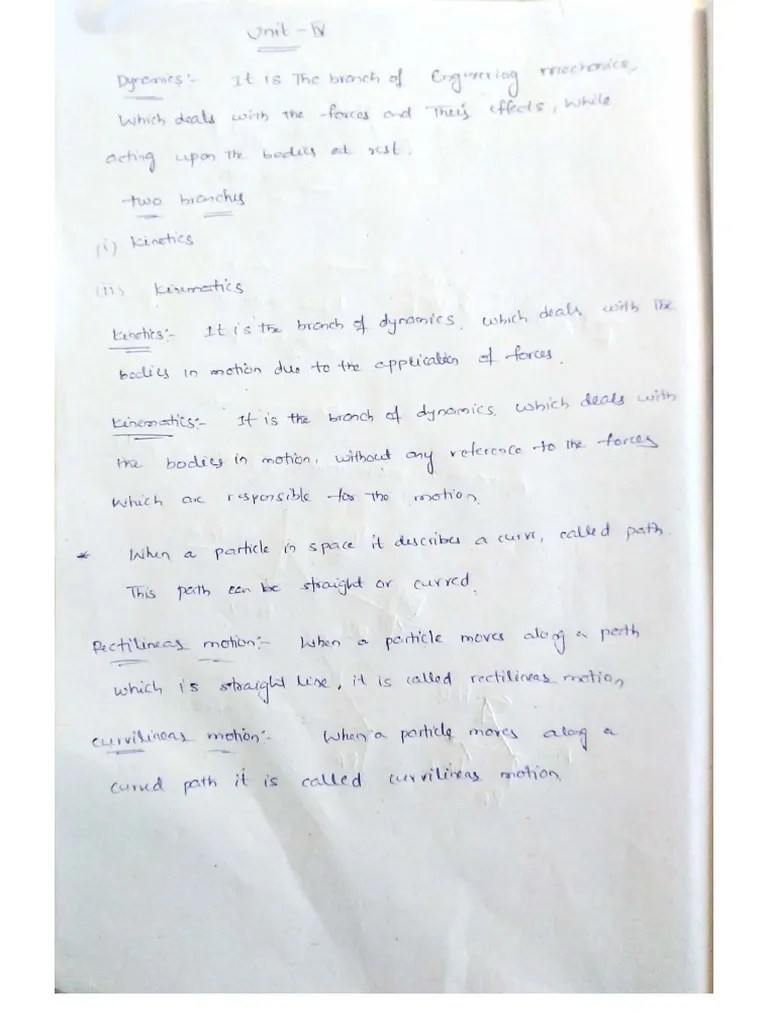 Unit - IV
Dynamics:- It is The branch of Engineering mechanics,
Which deals with the forces and Their effects, While
acting upon The bodies at rest.
two branches
(i) Kinetics
(ii) Kinematics
Kinetics:- It is the branch of dynamics, which deals with The
bodies in motion due to the application of forces.
Kinematics:- It is the branch of dynamics, which deals with
the bodies in motion, without any reference to the forces
Which are responsible for the motion.
* When a particle in space it describes a curve, called path.
This path can be straight or curved.
Rectilinear motion:- When a particle moves along a path
which is straight line, it is called rectilinear motion
curvilinear motion:- When a particle moves along a
curved path it is called curvilinear motion.